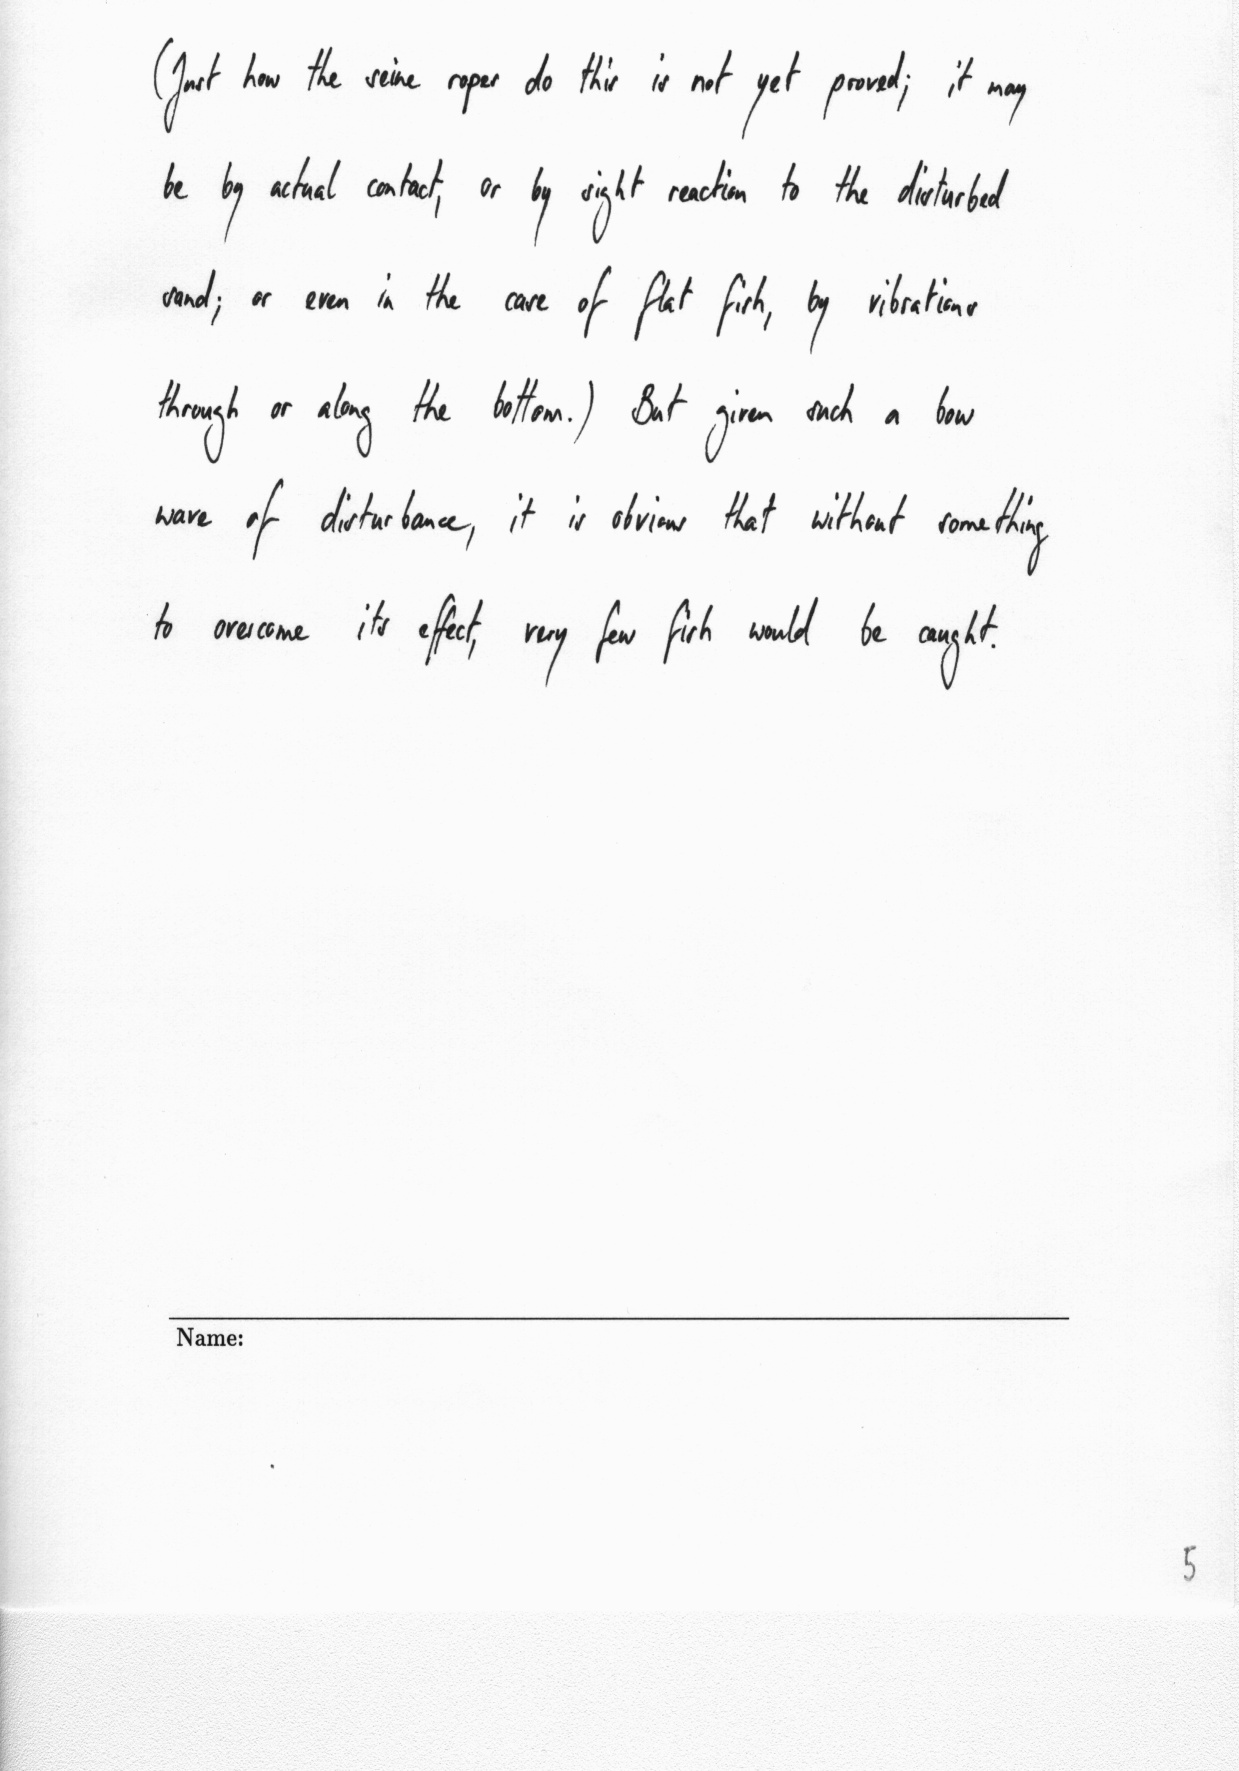 (Just how the seine ropes do this is not yet proved; it may
be by actual contact, or by sight reaction to the disturbed
sand; or even in the case of flat fish, by vibrations
through or along the bottom.) But given such a bow
wave of disturbance, it is obvious that without something
to overcome its effect, very few fish would be caught.
Name:
5